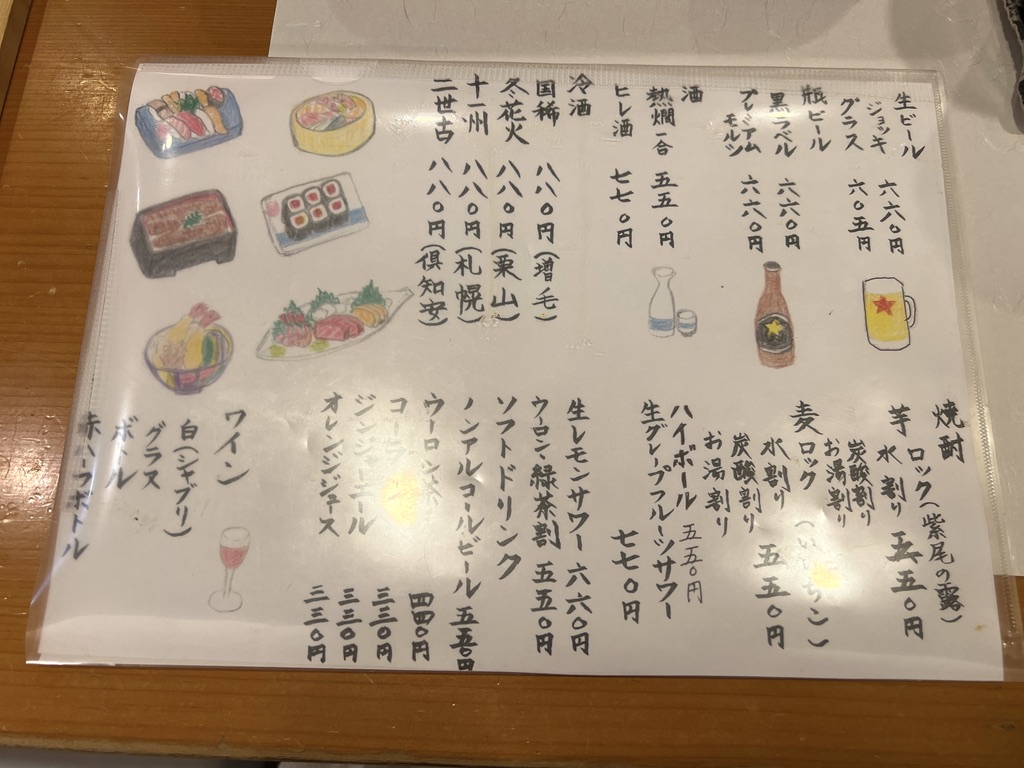 生ビール
ジョッキ 六六〇円
グラス 六〇五円
瓶ビール
黒ラベル 六六〇円
プレミアムモルツ 六六〇円
酒
熱燗一合 五五〇円
ヒレ酒 七七〇円
冷酒
国稀 八八〇円(増毛)
冬花火 八八〇円(栗山)
十一州 八八〇円(札幌)
二世古 八八〇円(倶知安)
焼酎
芋 ロック(紫尾の露)
水割り 五五〇円
炭酸割り
お湯割り
麦 ロック(いいちこ)
水割り 五五〇円
炭酸割り
お湯割り
ハイボール 五五〇円
生グレープフルーツサワー 七七〇円
生レモンサワー 六六〇円
ウーロン緑茶割 五五〇円
ソフトドリンク
ノンアルコールビール 五五〇円
ウーロン茶 四四〇円
コーラ 三三〇円
ジンジャーエール 三三〇円
オレンジジュース 三三〇円
ワイン
白(シャブリ)
グラス
ボトル
赤ハーフボトル